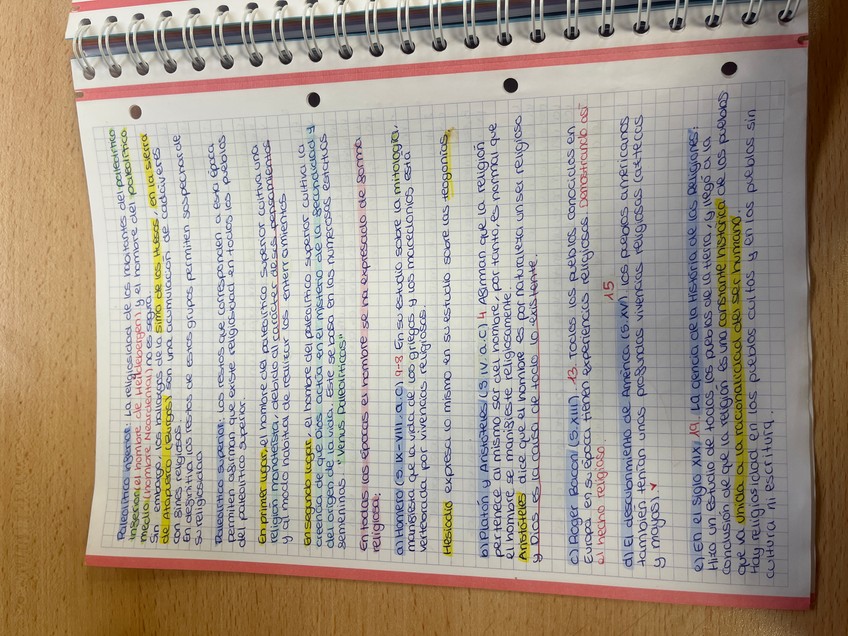 Paleolítico inferior: La religiosidad de los habitantes del paleolítico
inferior (el hombre de Heidelbergen) y el hombre del paleolítico
medio (hombre Neardental) no es segura.
Sin embargo, los hallazgos de la sima de los Huesos, en la sierra
de Atapuerca (Burgos) son una acumulación de cadáveres
con fines religiosos.
En definitiva los restos de estos grupos permiten sospechar de
su religiosidad
Paleolítico superior: Los restos que corresponden a esta época
permiten afirmar que existe religiosidad en todos los pueblos
del paleolítico superior.
En primer lugar, el hombre del paleolítico superior cultiva una
religión monoteísta, debido al carácter de sus pensamientos
y al modo habitual de realizar los enterramientos
En segundo lugar, el hombre del paleolítico superior cultiva la
creencia de que Dios actúa en el misterio de la fecundidad y
del origen de la vida. Este se basa en las numerosas estatuas
femeninas "Venus Paleolíticas"
En todas las épocas el hombre se ha expresado de forma
religiosa:
a) Homero (S. IX-VIII a.C) 9-8 En su estudio sobre la mitología,
manifiesta que la vida de los griegos y los macedonios está
vertebrada por vivencias religiosas.
Hesíodo expresa lo mismo en su estudio sobre las teogonías,
b) Platón y Aristóteles (S. IV. a. C) 4 Afirman que la religión
pertenece al mismo ser del hombre, por tanto, es normal que
el hombre se manifieste religiosamente
Aristóteles dice que el hombre es por naturaleza un ser religioso
y Dios es la causa de todo lo existente.
c) Roger Bacon (S. XIII) 13. Todos los pueblos conocidos en
Europa en su época tienen experiencias religiosas. Demostrando así
el hecho religioso.
15
d) El descubrimiento de América (S. XV) los pueblos americanos
también tenían unas profundas vivencias religiosas (aztecas
y mayas)
e) En el siglo XIX 19 La ciencia de la Historia de las religiones:
Hizo un estudio de todos los pueblos de la tierra, y llegó a la
conclusión de que la religión es una constante histórica de los pueblos
que va unida a la racionalidad del ser humano.
Hay religiosidad en los pueblos cultos y en los pueblos sin
cultura ni escritura.